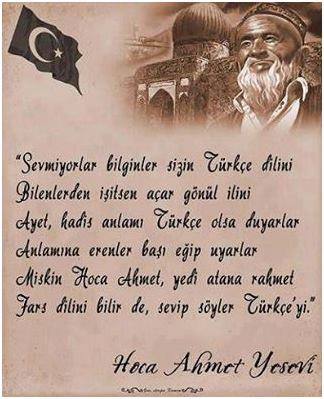 "Sevmiyorlar bilginler sizin Türkçe dilini
Bilenlerden işitsen açar gönül ilini
Ayet, hadis anlamı Türkçe olsa duyarlar
Anlamına erenler başı eğip uyarlar
Miskin Hoca Ahmet, yedi atana rahmet
Fars dilini bilir de, sevip söyler Türkçe'yi."
Hoca Ahmet Yesevî